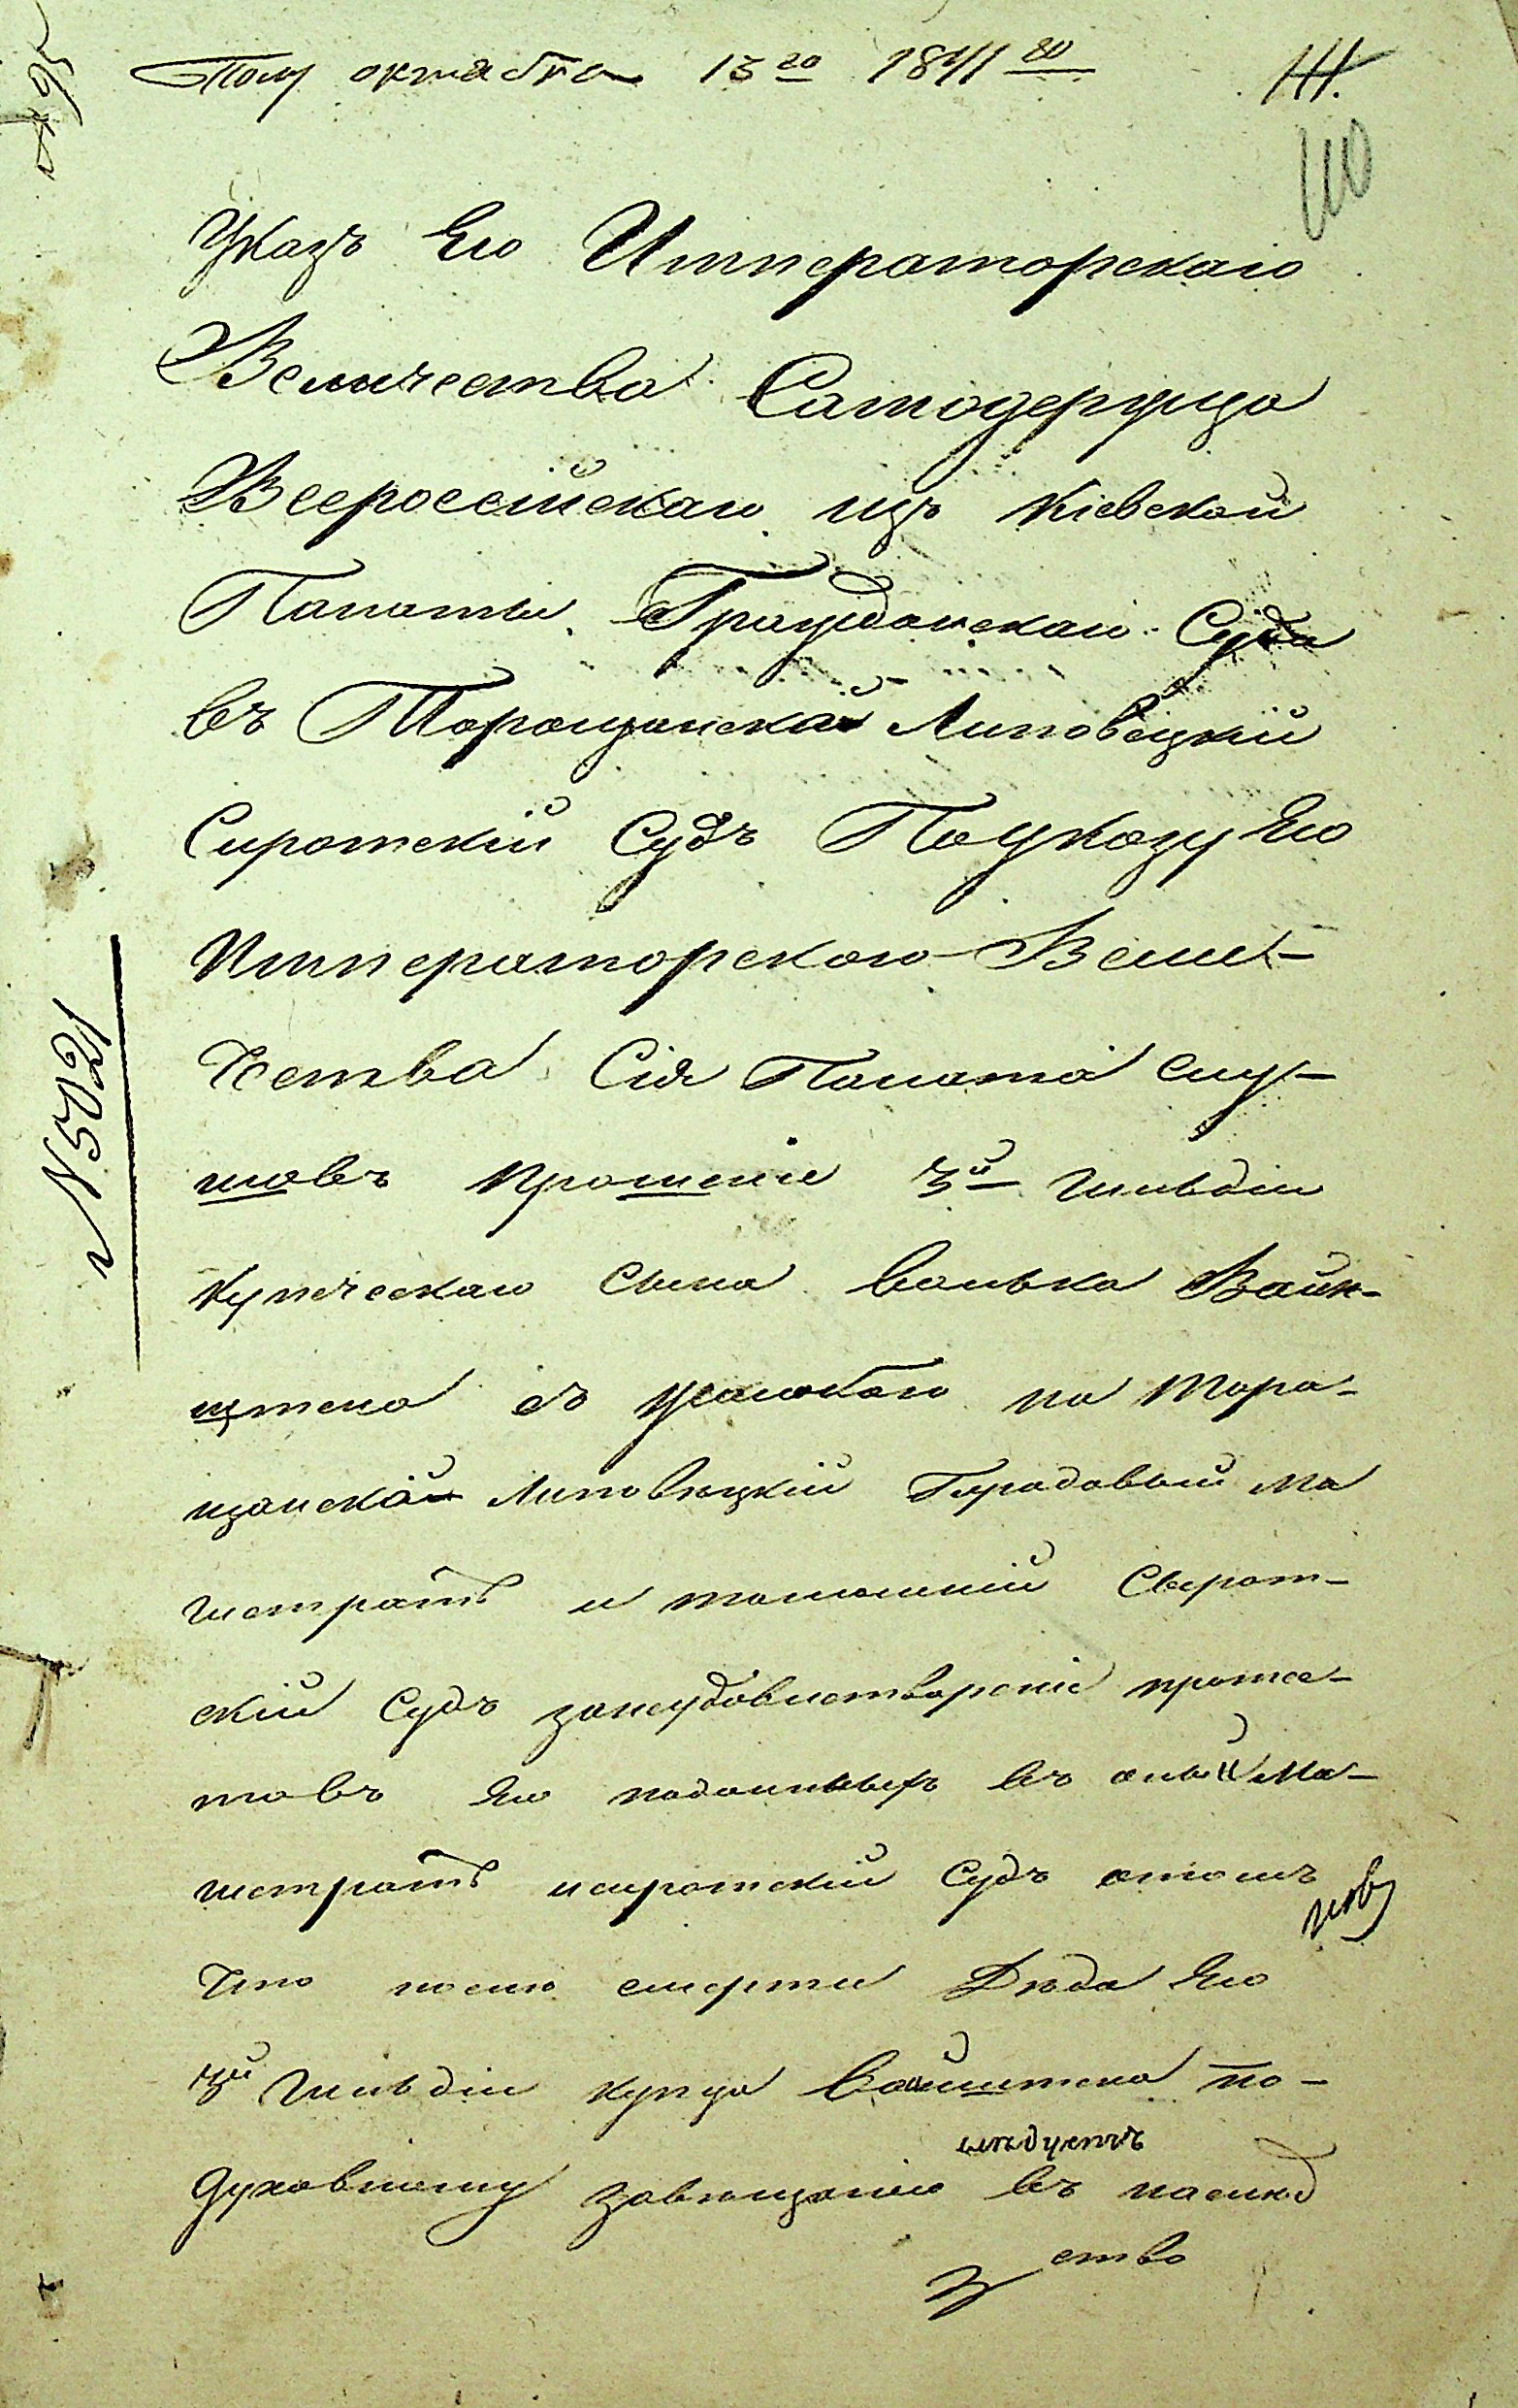 Полу октября 13го 1841го
Указъ Его Императорскаго
Величества Самодержца
Всероссійскаго изъ Кіевской
Палаты Гражданскаго Суда
въ Таращанскій Липовецкій
Сиротскій Судъ По указу Его
Императорскаго Вели-
чества Сія Палата слу-
шавъ прошеніе 3й гильдіи
купеческаго сына Волька Вайн-
штена съ жалобою на Тара-
щанскій Липовецкій Городовый Ма
гистратъ и тамошній Сырот-
скій Судъ занеудовлетвореніе проше-
товъ Его поданныхъ въ оный Ма-
гистратъ исиротскій Судъ отомъ
что послѣ смерти Дѣда Его
3й гильдіи купца Вайнштена по-
слѣдуетъ
духовному завѣщанію въ наслѣд
ство
№ 5021